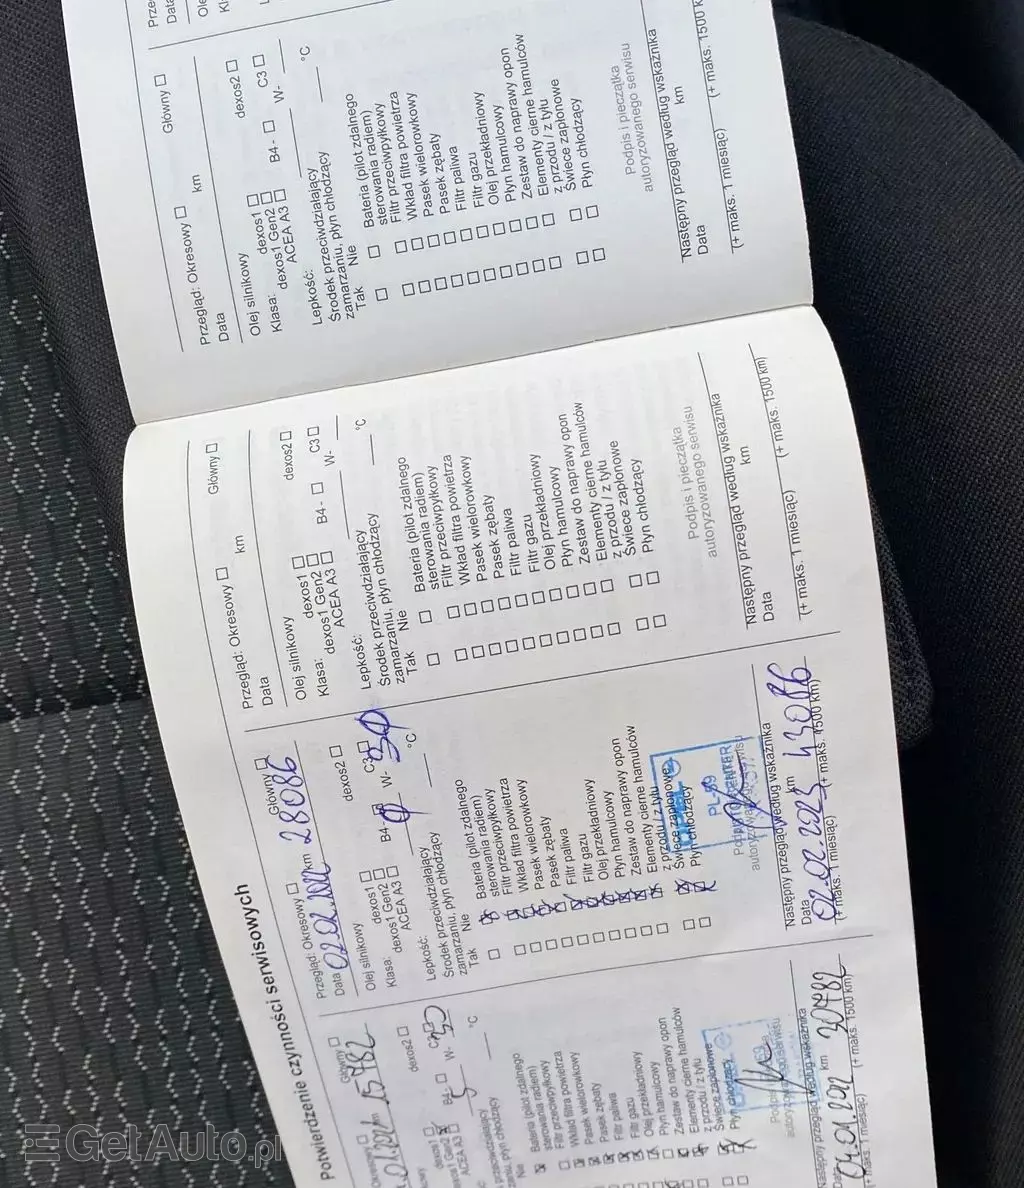 Potwierdzenie czynności serwisowych
Okresowy ☐ Główny ☐
15782
dexos2 ☐
dexos1 Gen2
ACEA A3 ☐ B4 - ☐ C3
W- 30
°C
Nie
Bateria (pilot zdalnego
sterowania radiem)
Filtr przeciwpyłkowy
Wkład filtra powietrza
Pasek wielorowkowy
Pasek zębaty
Filtr paliwa
Filtr gazu
Olej przekładniowy
Płyn hamulcowy
Zestaw do naprawy opon
Elementy cierne hamulców
z przodu / z tyłu
Świece zapłonowe
Płyn chłodzący
Następny przegląd według wskaźnika
Data 04.01.2022 km 30782
(+ maks. 1 miesiąc) (+ maks. 1500 km)
Przegląd: Okresowy ☐ Główny ☐
Data 02.02.2022 km 28086
Olej silnikowy
dexos1 ☐ dexos2 ☐
Klasa: dexos1 Gen2 ☐
ACEA A3 ☐ B4 - C3 ☐
Lepkość: 0 W- 30
Środek przeciwdziałający
zamarzaniu, płyn chłodzący °C
Tak Nie
Bateria (pilot zdalnego
sterowania radiem)
Filtr przeciwpyłkowy
Wkład filtra powietrza
Pasek wielorowkowy
Pasek zębaty
Filtr paliwa
Filtr gazu
Olej przekładniowy
Płyn hamulcowy
Zestaw do naprawy opon
Elementy cierne hamulców
z przodu / z tyłu
Świece zapłonowe
Płyn chłodzący
Następny przegląd według wskaźnika
Data 02.02.2023 km 43086
(+ maks. 1 miesiąc) (+ maks. 1500 km)
Przegląd: Okresowy ☐ Główny ☐
Data km
Olej silnikowy
dexos1 ☐ dexos2 ☐
Klasa: dexos1 Gen2 ☐
ACEA A3 ☐ B4 - ☐ C3 ☐
Lepkość: W-
Środek przeciwdziałający
zamarzaniu, płyn chłodzący °C
Tak Nie
Bateria (pilot zdalnego
sterowania radiem)
Filtr przeciwpyłkowy
Wkład filtra powietrza
Pasek wielorowkowy
Pasek zębaty
Filtr paliwa
Filtr gazu
Olej przekładniowy
Płyn hamulcowy
Zestaw do naprawy opon
Elementy cierne hamulców
z przodu / z tyłu
Świece zapłonowe
Płyn chłodzący
Podpis i pieczątka
autoryzowanego serwisu
Następny przegląd według wskaźnika
Data km
(+ maks. 1 miesiąc) (+ maks. 1500 km)
Przegląd: Okresowy ☐ Główny ☐
Data km
Olej silnikowy
dexos1 ☐ dexos2 ☐
Klasa: dexos1 Gen2 ☐
ACEA A3 ☐ B4 - ☐ C3 ☐
Lepkość: W-
Środek przeciwdziałający
zamarzaniu, płyn chłodzący °C
Tak Nie
Bateria (pilot zdalnego
sterowania radiem)
Filtr przeciwpyłkowy
Wkład filtra powietrza
Pasek wielorowkowy
Pasek zębaty
Filtr paliwa
Filtr gazu
Olej przekładniowy
Płyn hamulcowy
Zestaw do naprawy opon
Elementy cierne hamulców
z przodu / z tyłu
Świece zapłonowe
Płyn chłodzący
Podpis i pieczątka
autoryzowanego serwisu
Następny przegląd według wskaźnika
Data km
(+ maks. 1 miesiąc) (+ maks. 1500 k
GetAuto.pl